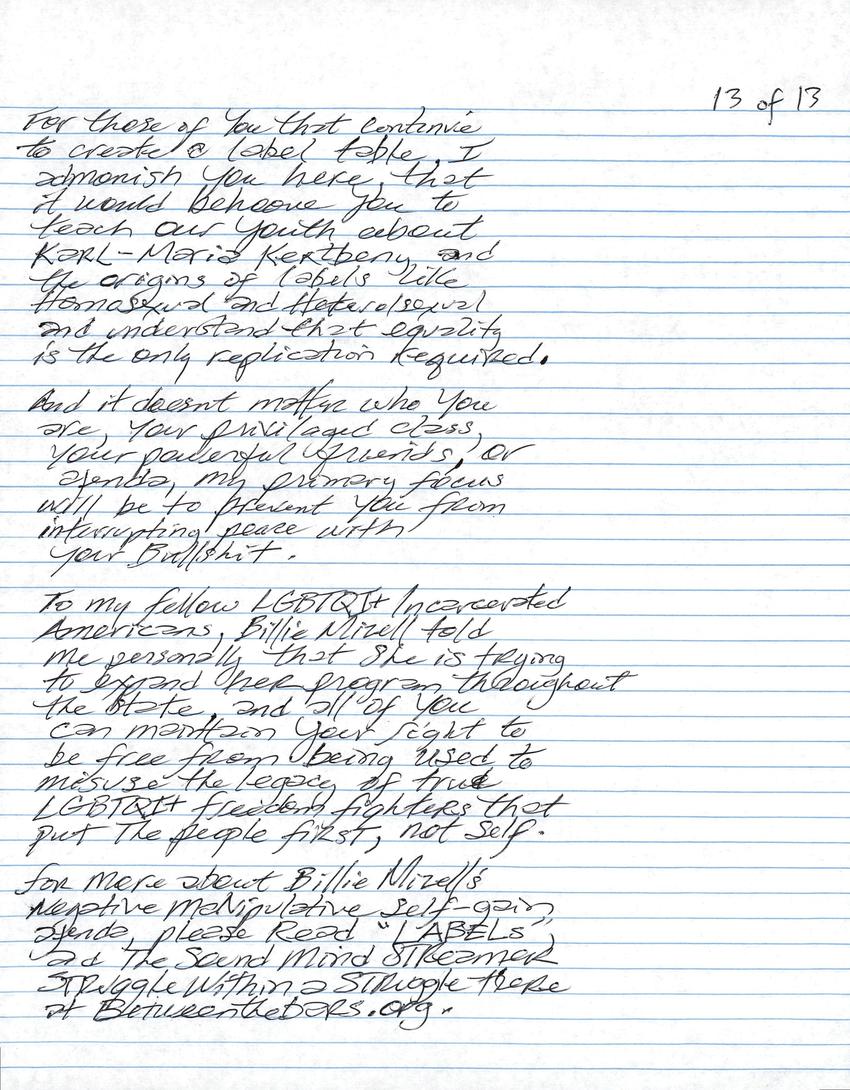 13 of 13
For those of You that continue
to create a label table, I
admonish you here, that
it would behoove you to
teach our youth about
KARL-Maria Kertbeny and
the origins of labels like
Homosexual and Heterolsexual
and understand that equality
is the only replication required.
And it doesnt matter who You
are, Your privilaged class,
your powerful friends, or
agenda, my primary focus
will be to prevent you from
interrupting peace with
your Bullshit.
To my fellow LGBTQI+ Incarcerated
Americans, Billie Mizell told
me personally that She is trying
to expand her program throughout
the State, and all of You
can maintain your right to
be free from being used to
misuse the legacy of true
LGBTQI+ freedom fighters that
put The people first, not Self.
for more about Billie Mizell's
negative manipulative self-gain
agenda, please Read "LABELs",
ad The Sound Mind STReamer
STRuggle Within a STRuggle there
at Betweenthebars.org.